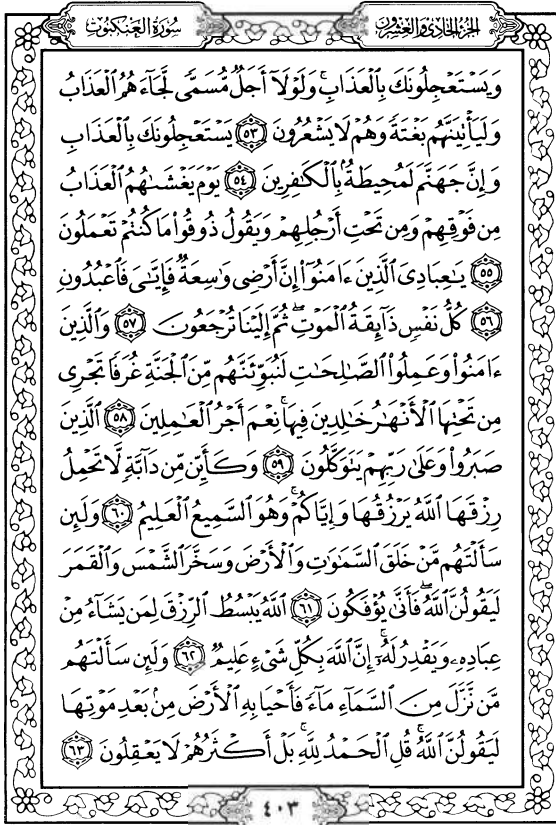 الجزء الحادي والعشرون
سورة العنكبوت
وَيَسْتَعْجِلُونَكَ بِالْعَذَابِ ۚ وَلَوْلَا أَجَلٌ مُّسَمًّى لَّجَاءَهُمُ الْعَذَابُ
وَلَيَأْتِيَنَّهُم بَغْتَةً وَهُمْ لَا يَشْعُرُونَ ٥٣ يَسْتَعْجِلُونَكَ بِالْعَذَابِ
وَإِنَّ جَهَنَّمَ لَمُحِيطَةٌ بِالْكَافِرِينَ ٥٤ يَوْمَ يَغْشَاهُمُ الْعَذَابُ
مِن فَوْقِهِمْ وَمِن تَحْتِ أَرْجُلِهِمْ وَيَقُولُ ذُوقُوا مَا كُنتُمْ تَعْمَلُونَ
٥٥ يَا عِبَادِيَ الَّذِينَ آمَنُوا إِنَّ أَرْضِي وَاسِعَةٌ فَإِيَّايَ فَاعْبُدُونِ
٥٦ كُلُّ نَفْسٍ ذَائِقَةُ الْمَوْتِ ۖ ثُمَّ إِلَيْنَا تُرْجَعُونَ ٥٧ وَالَّذِينَ
آمَنُوا وَعَمِلُوا الصَّالِحَاتِ لَنُبَوِّئَنَّهُم مِّنَ الْجَنَّةِ غُرَفًا تَجْرِي
مِن تَحْتِهَا الْأَنْهَارُ خَالِدِينَ فِيهَا ۚ نِعْمَ أَجْرُ الْعَامِلِينَ ٥٨ الَّذِينَ
صَبَرُوا وَعَلَىٰ رَبِّهِمْ يَتَوَكَّلُونَ ٥٩ وَكَأَيِّن مِّن دَابَّةٍ لَّا تَحْمِلُ
رِزْقَهَا اللَّهُ يَرْزُقُهَا وَإِيَّاكُمْ ۚ وَهُوَ السَّمِيعُ الْعَلِيمُ ٦٠ وَلَئِن
سَأَلْتَهُم مَّنْ خَلَقَ السَّمَاوَاتِ وَالْأَرْضَ وَسَخَّرَ الشَّمْسَ وَالْقَمَرَ
لَيَقُولُنَّ اللَّهُ ۖ فَأَنَّىٰ يُؤْفَكُونَ ٦١ اللَّهُ يَبْسُطُ الرِّزْقَ لِمَن يَشَاءُ مِنْ
عِبَادِهِ وَيَقْدِرُ لَهُ ۚ إِنَّ اللَّهَ بِكُلِّ شَيْءٍ عَلِيمٌ ٦٢ وَلَئِن سَأَلْتَهُم
مَّن نَّزَّلَ مِنَ السَّمَاءِ مَاءً فَأَحْيَا بِهِ الْأَرْضَ مِن بَعْدِ مَوْتِهَا
لَيَقُولُنَّ اللَّهُ ۚ قُلِ الْحَمْدُ لِلَّهِ ۚ بَلْ أَكْثَرُهُمْ لَا يَعْقِلُونَ ٦٣
٤٠٣